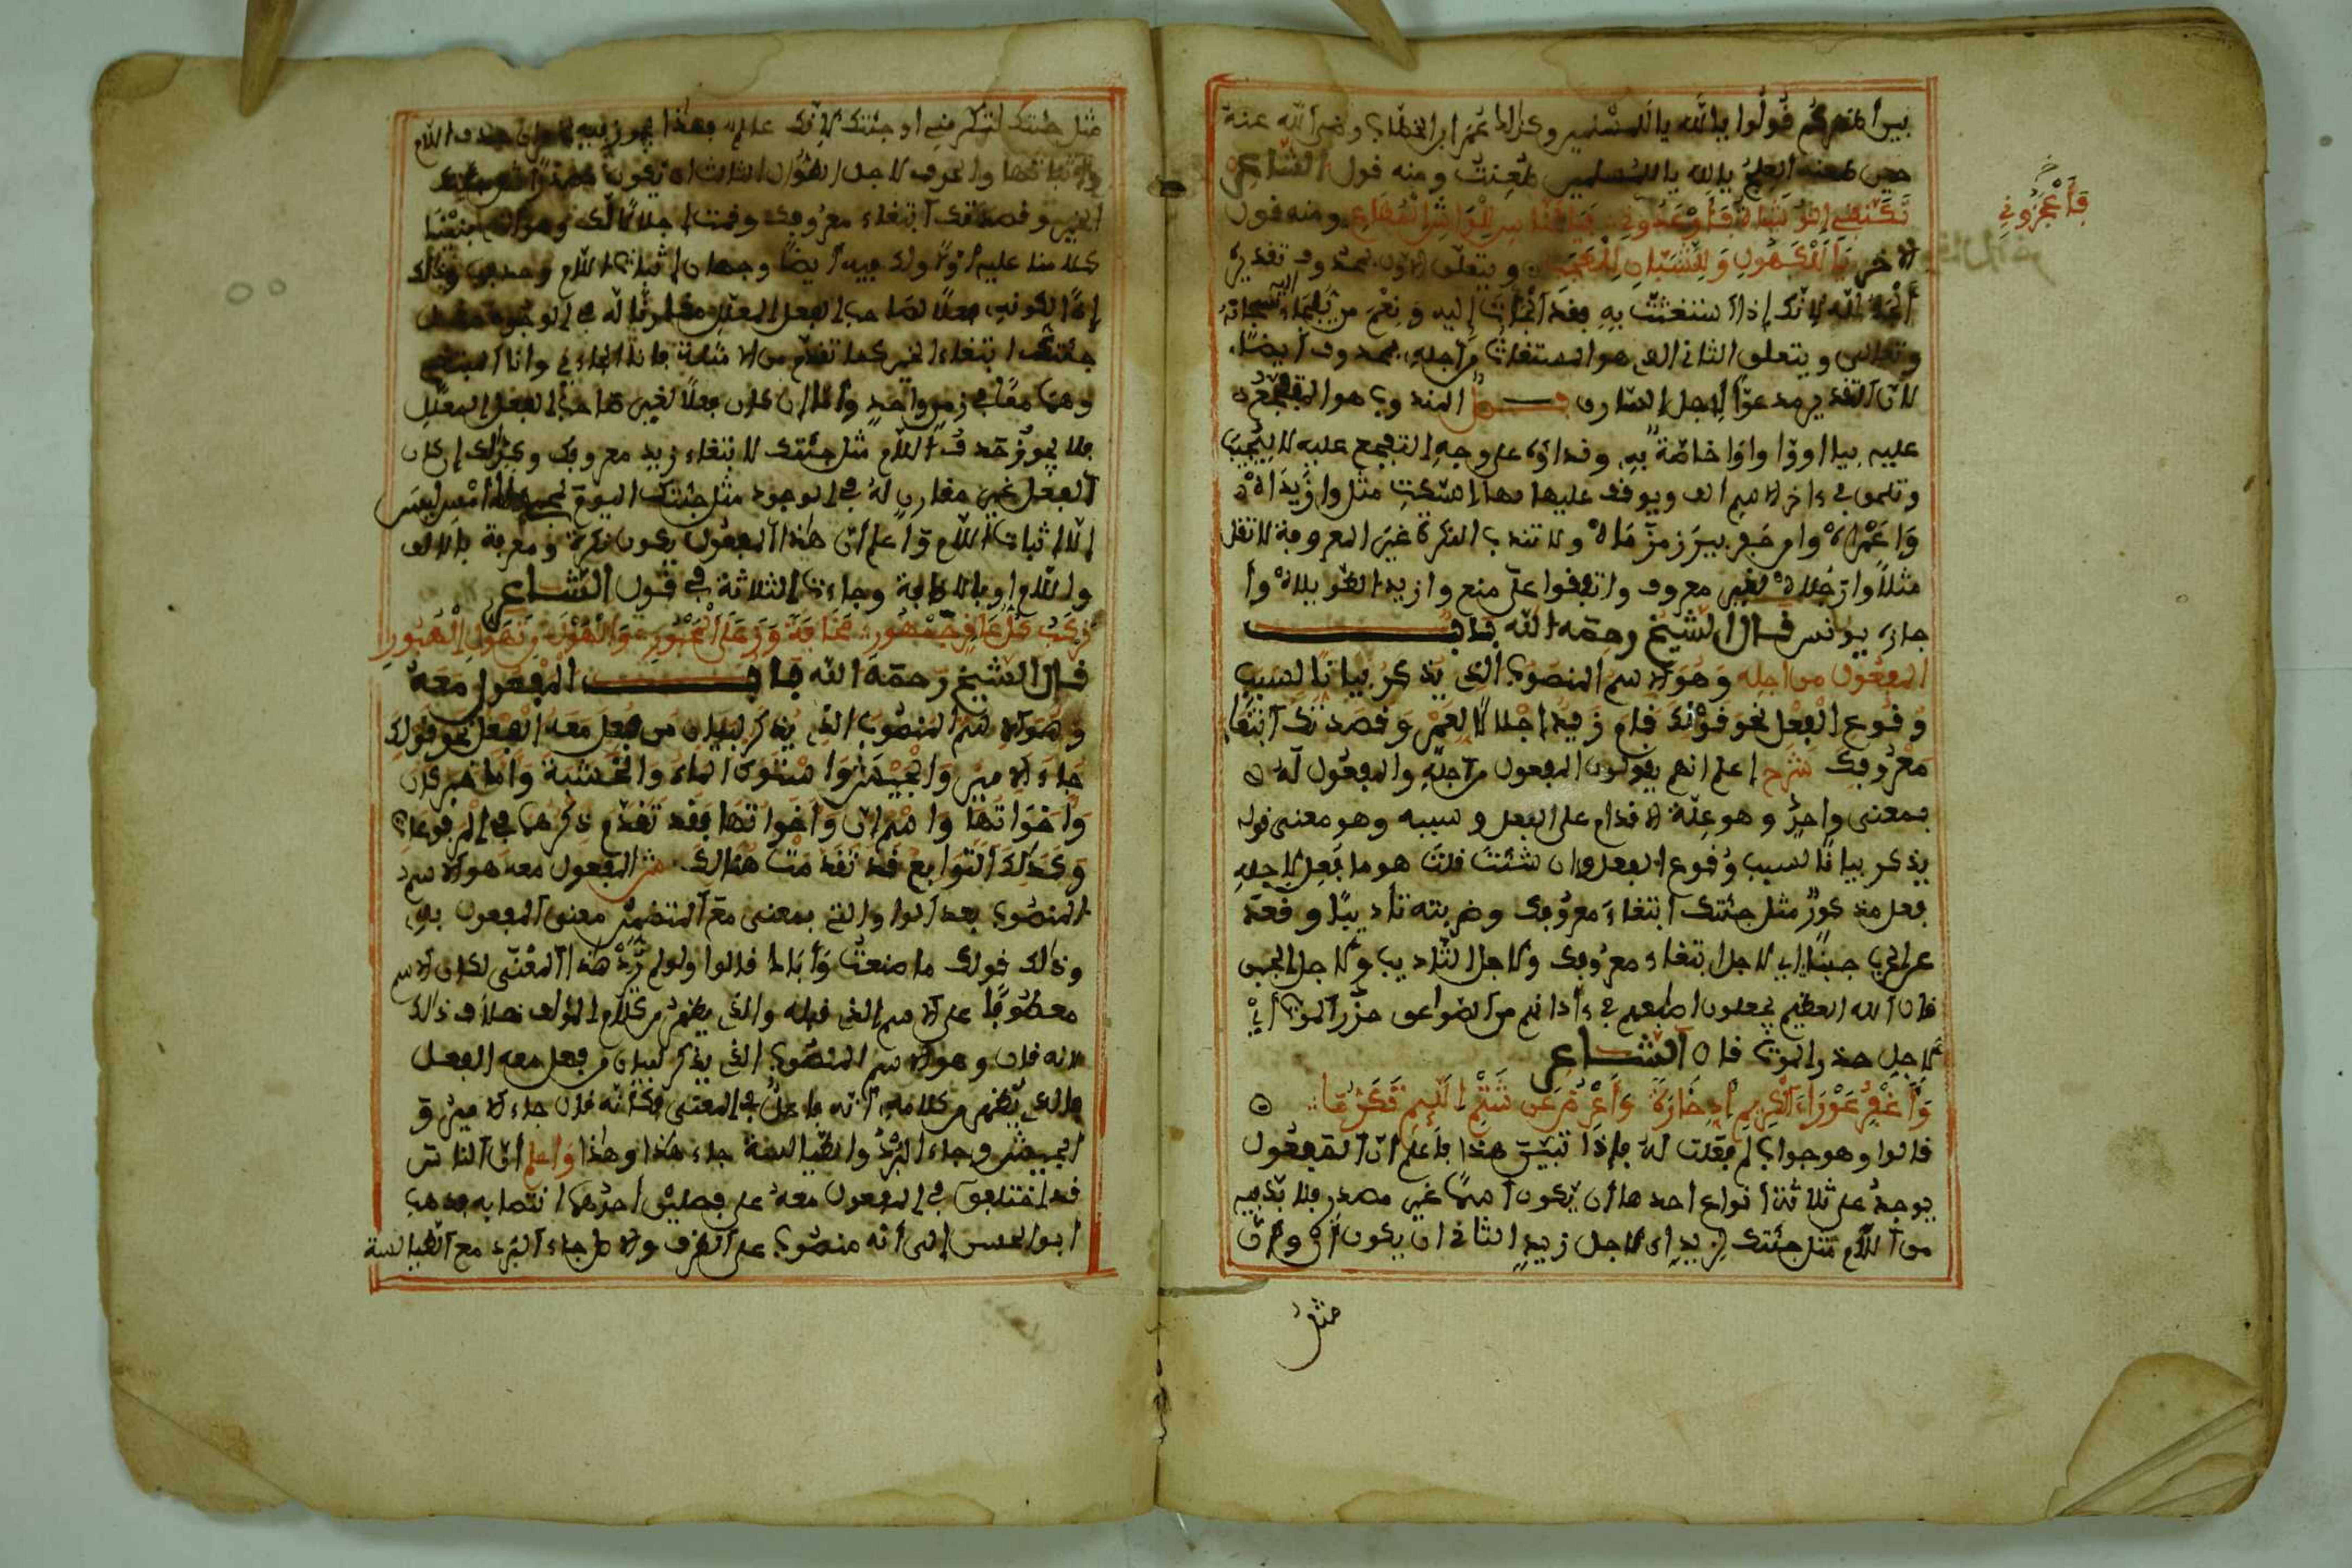 بين أظهركم قولوا يا لله يا للمسلمين وكذا عمر ابن الخطاب رضي الله عنه
حين طعنه العلج يا لله يا للمسلمين طعنت ومنه قول الشاعر
تكنفني الوشاة فأوعدوني فيا لناس للواشي المطاع ومنه قول
فأعجزوني
الاخر يا للكهول وللشبان للعجب ويتعلق الاول بمحذوف تقديره
لانك إذا استغثت به فقد إليه ونعم من
وتعالى ويتعلق الثاني الذي هو المستغاث من أجله بمحذوف أيضا
لان التقدير مدعوا لأجل السارق المندوب هو المتفجع
عليه بيا أو وا و وا خاصة به ونداؤه على وجه التفجع عليه لا ليجيب
وتلحق في ءاخر الاسم الف ويوقف عليها بهاء السكت مثل وا زيداه
وا عمراه وا من حفر بير زمزماه ولا تندب النكرة غير المعروفة لا تقل
مثلا وا رجلاه لغير معروف واتفقوا على منع وا زيد الطويلاه و
جازه يونس قال الشيخ رحمه الله باب
المفعول من اجله وهو الاسم المنصوب الذي يذكر بيانا لسبب
وقوع الفعل نحو قولك قام زيد اجلالا لعمر وقصدتك ابتغاء
معروفك شرح اعلم انهم يقولون المفعول من اجله والمفعول له
بمعنى واحد وهو علة الاقدام على الفعل وسببه وهو معنى قوله
يذكر بيانا لسبب وقوع الفعل وان شئت قلت هو ما فعل لاجله
فعل مذكور مثل جئتك ابتغاء معروفك وضربته تأديبا وقعد
عن الحرب جبنا اي لاجل ابتغاء معروفك ولاجل التاديب ولاجل الجبن
قال الله العظيم يجعلون اصابعهم في ءاذانهم من الصواعق حذر الموت أي
لاجل حذر الموت قال الشاعر
وأغفر عوراء الكريم ادخاره وأعرض عن شتم اللئيم تكرما
قالوا وهو جواب لم فعلت له فإذا تبين هذا فاعلم ان المفعول
يوجد على ثلاثة انواع احدها ان يكون اسما غير مصدر فلا بد فيه
من اللام مثل جئتك لزيد اي لاجل زيد الثاني ان يكون أن وأن
مثل
مثل جئتك لتكرمني او جئتك لانك عالم فهذا يجوز فيه حذف اللام
واثباتها والمعروف لاجل الطول الثالث ان يكون مصدرا
الخير وقصدتك ابتغاء معروفك وقمت اجلالا لك وهو الذي بنينا
كلامنا عليه أولا ولك فيه أيضا وجهان إثبات اللام وحذفها وذلك
إذا لكونه فعلا لصاحب الفعل المعلل مقارنا له في الوجود
جئتك ابتغاء الخير كما تقدم من الامثلة فانا الجاءي وانا المبتغي
وهما معا في زمن واحد وأما إن كان فعلا لغير صاحب الفعل المعلل
فلا يجوز حذف اللام مثل جئتك لابتغاء زيد معروفك وكذلك إن كان
الفعل غير مقارن له في الوجود مثل جئتك اليوم امس ليس
إلا إثبات اللام واعلم ان هذا المفعول يكون نكرة ومعرفة بالالف
واللام أو بالاضافة وجاءت الثلاثة في قول الشاعر
يركب كل عاقر جمهور مخافة وزعل المحبور والهول من تهول الهبور
قال الشيخ رحمه الله باب المفعول معه
وهو الاسم المنصوب الذي يذكر لبيان من فعل معه الفعل نحو قولك
جاء الامير والجيش واستوى الماء والخشبة وأما خبر كان
واخواتها واسم ان واخواتها فقد تقدم ذكرهما في المرفوعات
وكذلك التوابع فقد تقدمت هنالك ش المفعول معه هو الاسم
المنصوب بعد الواو التي بمعنى مع المتضمن معنى المفعول به
وذلك قولك ما صنعت وأباك قالوا ولو لم ترد هذا المعنى لكان الاسم
معطوفا على الاسم الذي قبله والذي يظهر من كلام المؤلف خلاف ذلك
لانه قال وهو الاسم المنصوب الذي يذكر لبيان من فعل معه الفعل
فالذي يظهر من كلامه أنه فاعل في المعنى فكأنه قال جاء الامير و
الجيش وجاء البرد والطيالسة جاء هذا وهذا واعلم ان الناس
قد اختلفوا في المفعول معه على فصلين احدهما انتصابه فذهب
ابو الحسن إلى أنه منصوب على الظرف والاصل جاء البرد مع الطيالسة